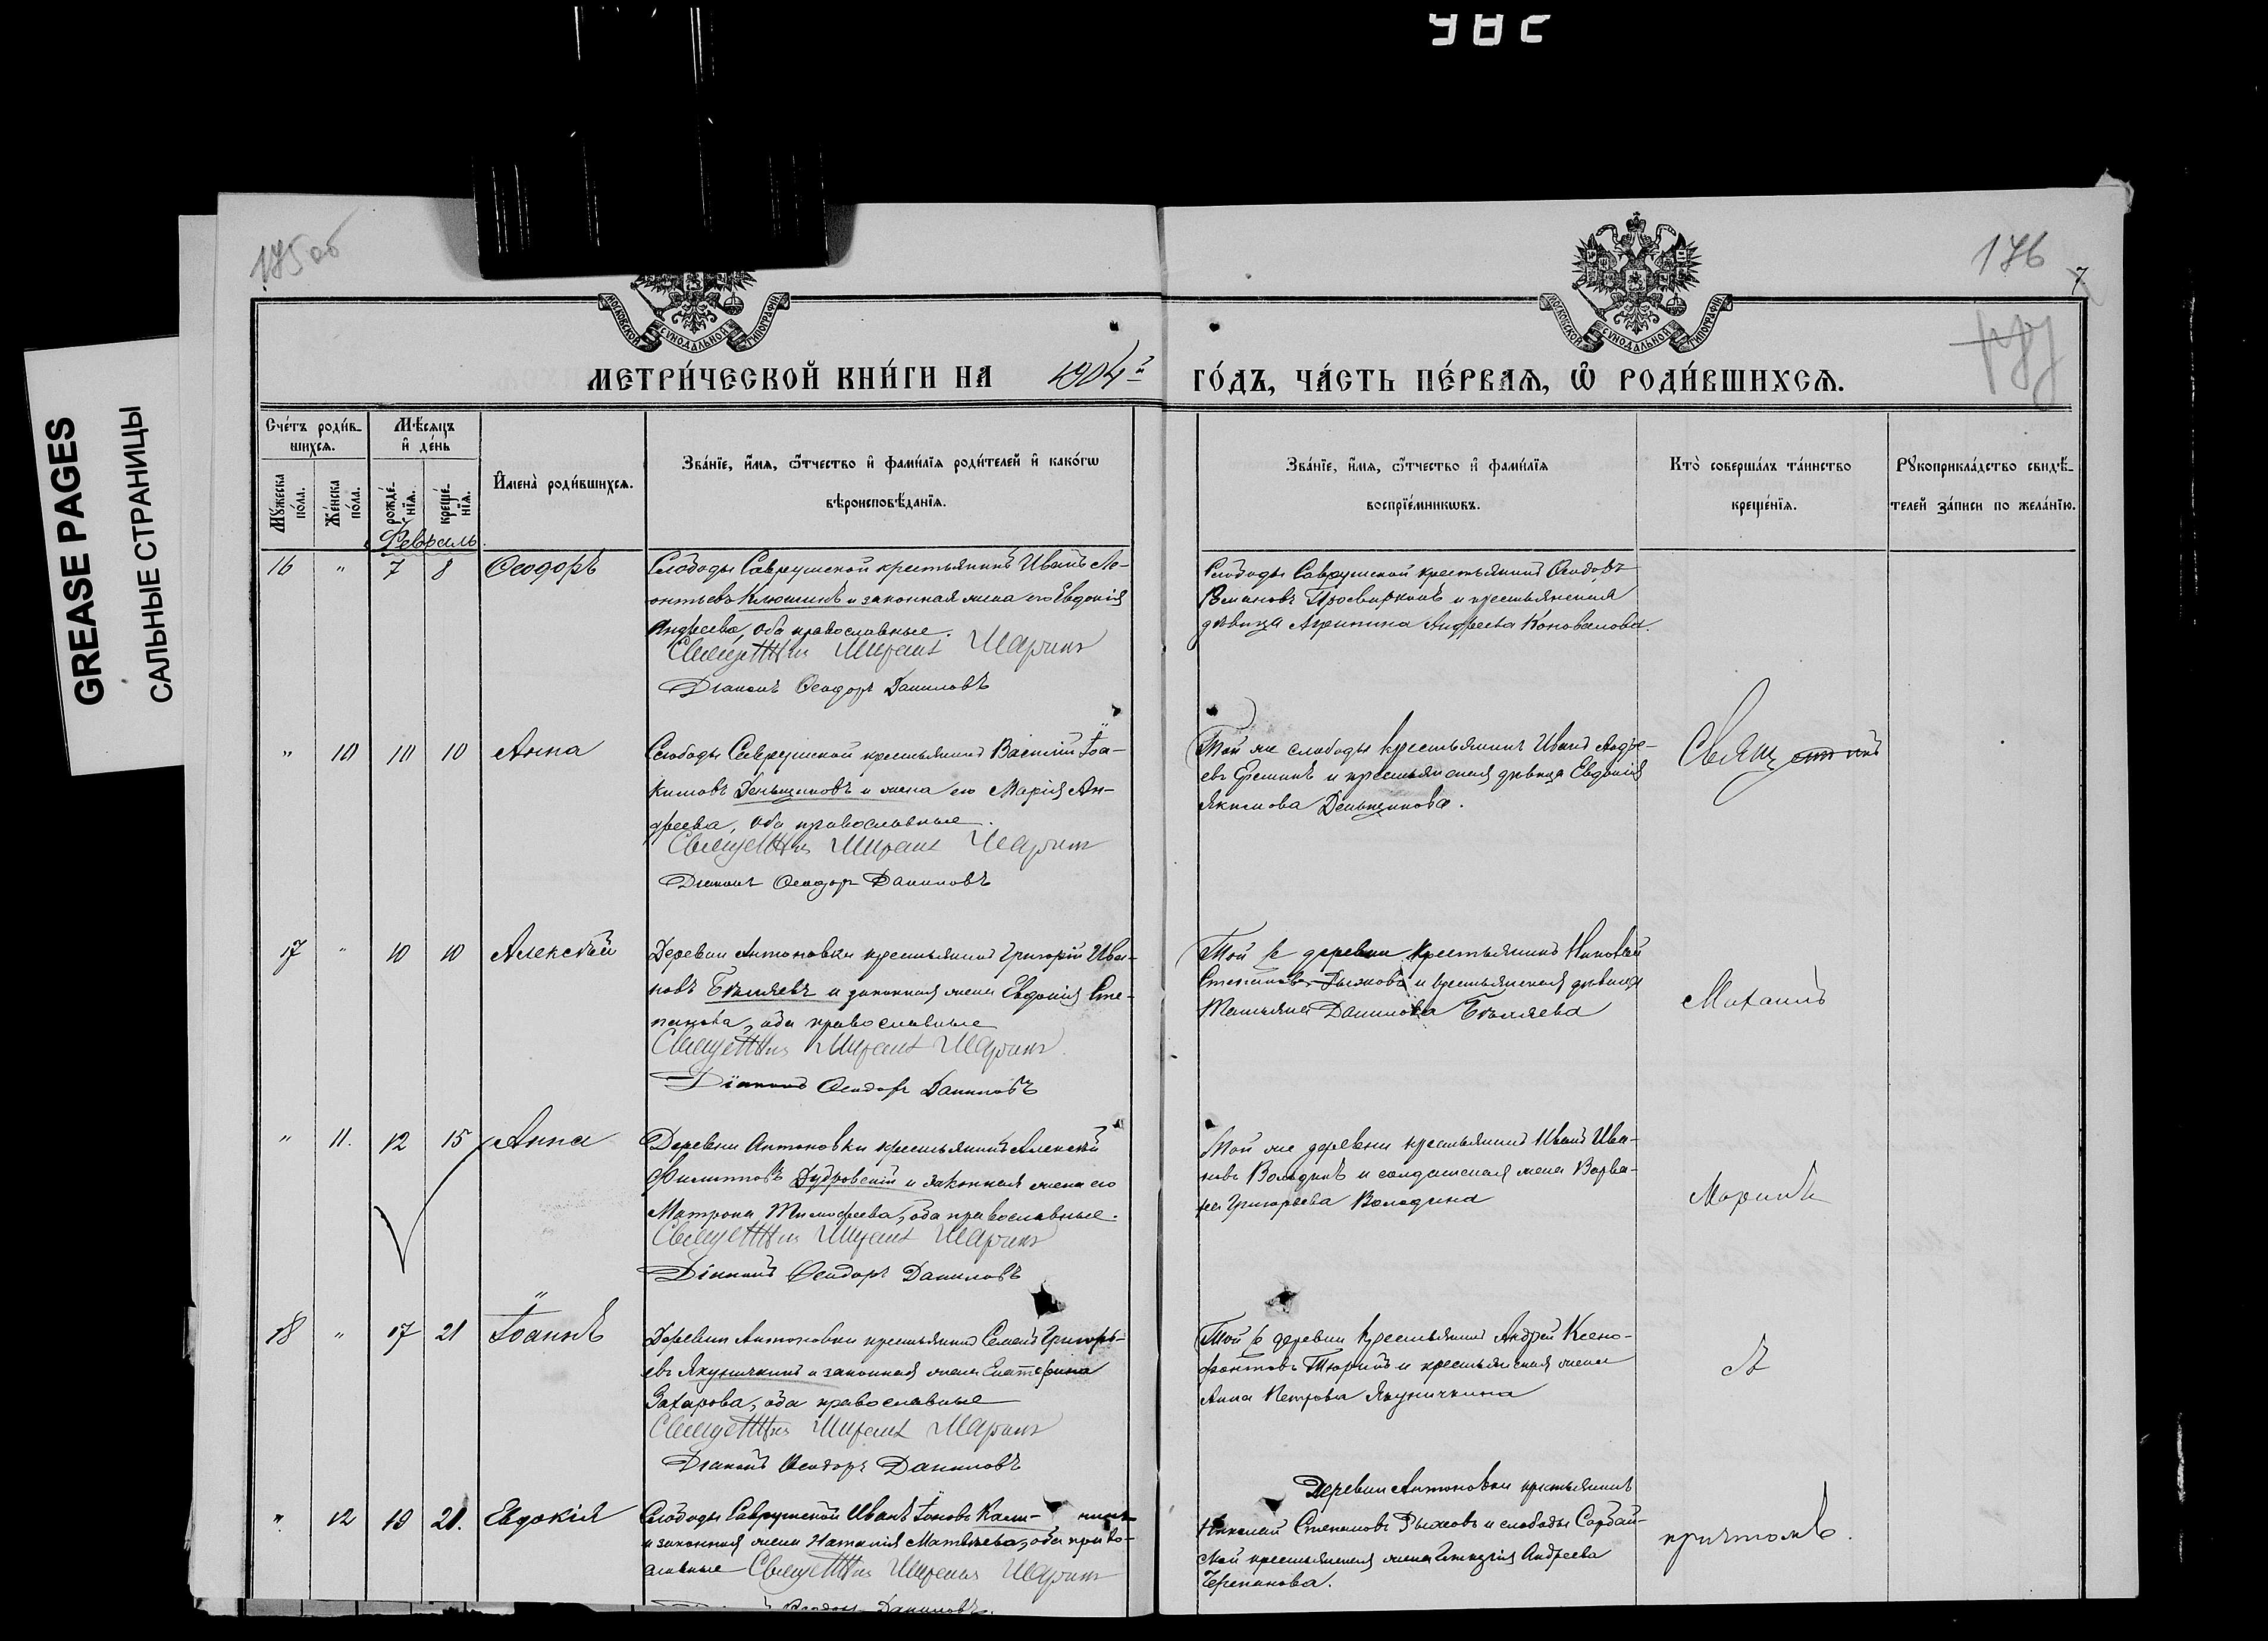 982
GREASE PAGES
САЛЬНЫЕ СТРАНИЦЫ
175об
176
7
МОСКОВСКОЙ СУНОДАЛЬНОЙ ТИПОГРАФІИ
МОСКОВСКОЙ СУНОДАЛЬНОЙ ТИПОГРАФІИ
МЕТРИ́ЧЕСКОЙ КНИ́ГИ НА 1904й ГО́ДЪ, ЧА́СТЬ ПЕ́РВАѦ, Ѡ҆ РОДИ́ВШИХСѦ.
Сче́тъ роди́в-
шихсѧ.
Мꙋ́жеска
по́ла.
Же́нска
по́ла.
Мѣ́сѧцъ
и҆ де́нь
рожде́-
нїѧ.
креще́-
нїѧ.
И҆мена̀ роди́вшихсѧ.
Зва́нїе, и҆́мѧ, ѻ҆́тчество и҆ фами́лїѧ роди́телей и҆ како́гѡ
вѣроисповѣ́данїѧ.
Зва́нїе, и҆́мѧ, ѻ҆́тчество и҆ фами́лїѧ
воспрїе́мникѡвъ.
Кто̀ соверша́лъ та́инство
креще́нїѧ.
Рꙋкоприкла́дство свидѣ́-
телей за́писи по жела́нїю.
Февраль.
16 " 7 8 Ѳеодоръ
Слободы Саврушской крестьянинъ Иванъ Ле-
онтьевъ Клюшинъ и законная жена его Евдокія
Андреева, оба православные.
Священникъ Михаилъ Маринъ
Діаконъ Ѳеодоръ Даниловъ
Слободы Саврушской крестьянинъ Ѳеодоръ
Романовъ Просвиркинъ и крестьянская
дѣвица Агрипина Андреева Коновалова.
" 10 10 10 Анна
Слободы Саврушской крестьянинъ Василій Іоа-
кимовъ Деньщиковъ и жена его Марія Ан-
дреева, оба православные.
Священникъ Михаилъ Маринъ
Діаконъ Ѳеодоръ Даниловъ
Той же слободы крестьянинъ Иванъ Андре-
евъ Ерёминъ и крестьянская дѣвица Евдокія
Якимова Деньщикова.
Священникъ
17 " 10 10 Алексѣй
Деревни Антоновки крестьянинъ Григорій Ива-
новъ Бѣляевъ и законная жена Евдокія Сте-
панова, оба православные
Священникъ Михаилъ Маринъ
Діаконъ Ѳеодоръ Даниловъ
Той же деревни крестьянинъ Николай
Степановъ Рыжовъ и крестьянская дѣвица
Татьяна Данилова Бѣляева
Михаилъ
" 11. 12 15 Анна
Деревни Антоновки крестьянинъ Алексѣй
Филипповъ Дубровскій и законная жена его
Матрона Тимофеева, оба православные.
Священникъ Михаилъ Маринъ
Діаконъ Ѳеодоръ Даниловъ
Той же деревни крестьянинъ Иванъ Ива-
новъ Володинъ и солдатская жена Варва-
ра Григорьева Володина
Маринъ
18 " 17 21 Іоаннъ
Деревни Антоновки крестьянинъ Семенъ Григорь-
евъ Якуничкинъ и законная жена Екатерина
Захарова, оба православные
Священникъ Михаилъ Маринъ
Діаконъ Ѳеодоръ Даниловъ
Той же деревни крестьянинъ Андрей Ксено-
фонтовъ Тюринъ и крестьянская жена
Анна Петрова Якуничкина
съ
" 12 19 21. Евдокія
Слободы Саврушской Иванъ Іоновъ Кали- нинъ
и законная жена Наталія Матвѣева, оба право-
славные Священникъ Михаилъ Маринъ
Ѳеодоръ Даниловъ.
Деревни Антоновки крестьянинъ
Николай Степановъ Рыжовъ и слободы Сарбай-
ской крестьянская жена Андреева
Черепанова.
причтомъ.